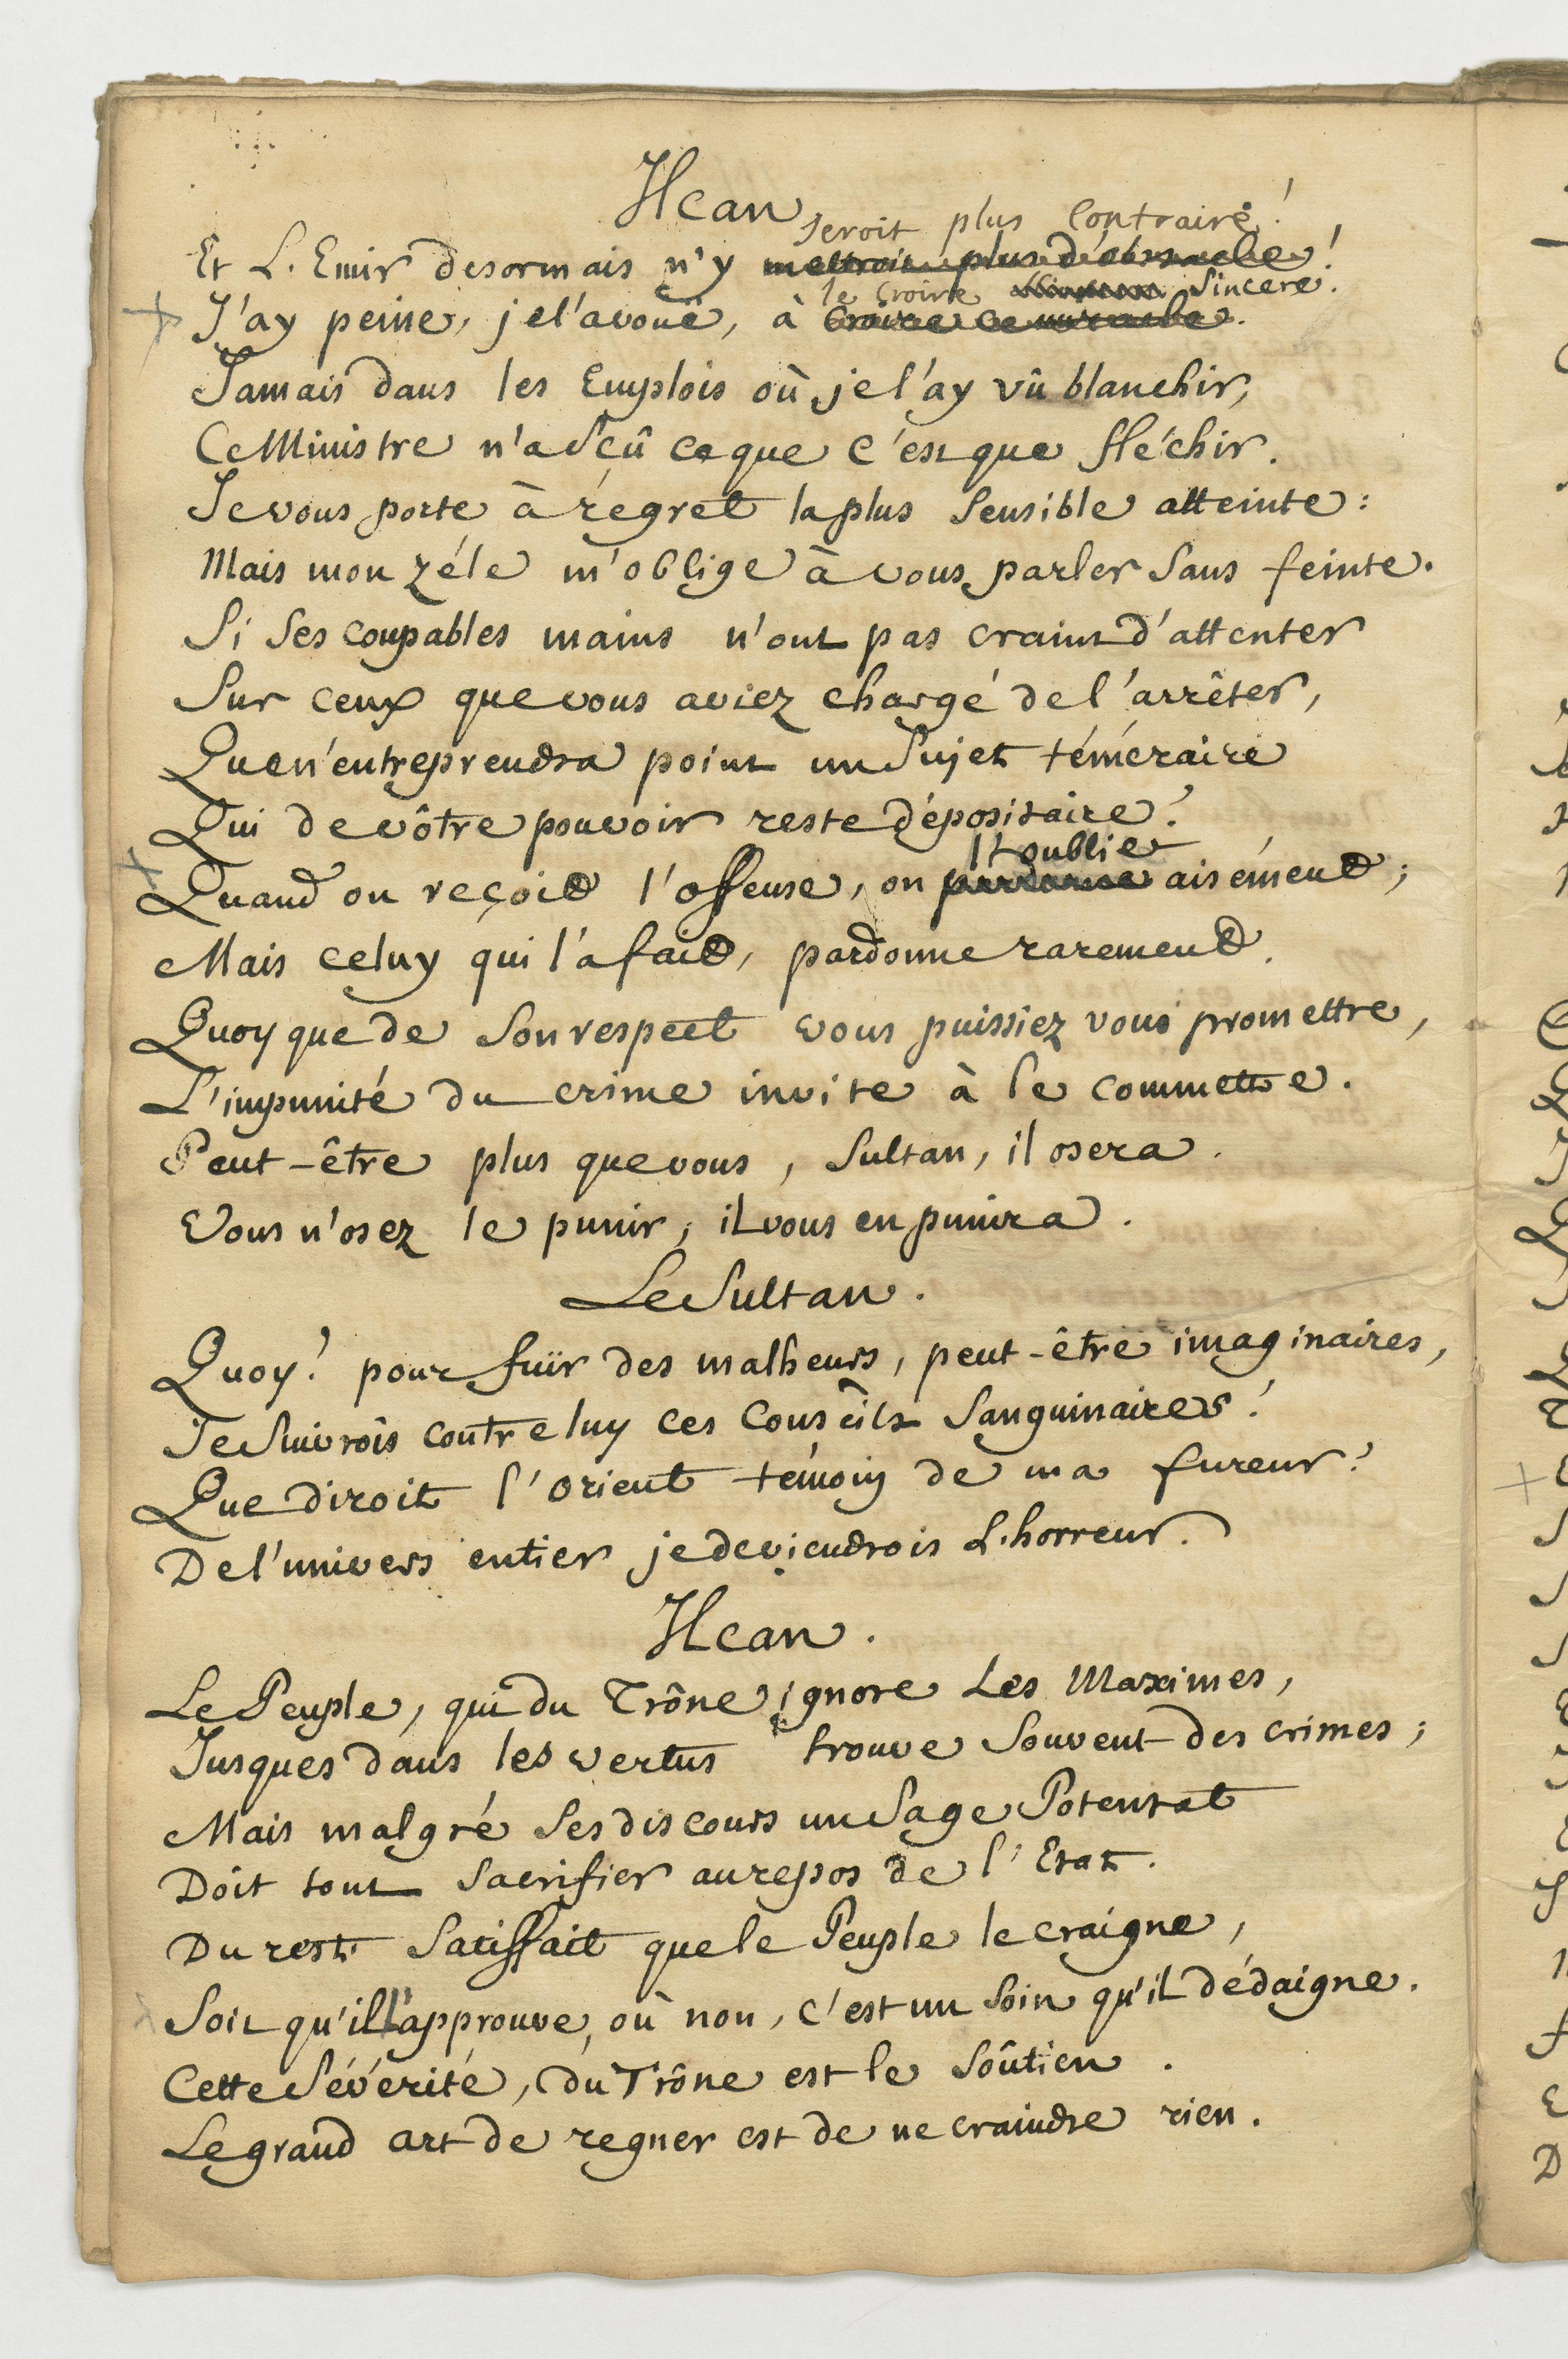 Hcan
seroit plus Contraire!
Et L'Emir desormais n'y mettroit plus d'obstacle!
le croire sincere.
J'ay peine, je l'avouë, à croire ce miracle.
Jamais dans les Emplois où je l'ay vû blanchir,
Ce Ministre n'a sçû ce que c'est que fléchir.
Je vous porte à regret la plus sensible atteinte:
Mais mon zéle m'oblige à vous parler sans feinte.
Si ses coupables mains n'ont pas craint d'attenter
Sur ceux que vous aviez chargé de l'arrêter,
Que n'entreprendra point un Sujet téméraire
Qui de vôtre pouvoir reste dépositaire?
l'oublie
Quand on reçoit l'offense, on pardonne aisément;
Mais celuy qui l'a fait, pardonne rarement.
Quoy que de son respect vous puissiez vous promettre,
L'impunité du crime invite à le commettre.
Peut-être plus que vous, Sultan, il osera.
Vous n'osez le punir, il vous en punira.
Le Sultan.
Quoy! pour fuïr des malheurs, peut-être imaginaires,
Je suivrois contre luy ces Conseils sanguinaires!
Que diroit l'Orient témoin de ma fureur?
De l'univers entier je deviendrois L'horreur.
Hcan.
Le Peuple, qui du Trône ignore Les Maximes,
Jusques dans les vertus trouve souvent des crimes;
Mais malgré ses discours un sage Potentat
Doit tout sacrifier au repos de l'Etat.
Du reste satisfait que le Peuple le craigne,
Soit qu'il l'approuve, où non, c'est un soin qu'il dédaigne.
Cette Sévérité, du Trône est le Soûtien.
Le grand art de regner est de ne craindre rien.